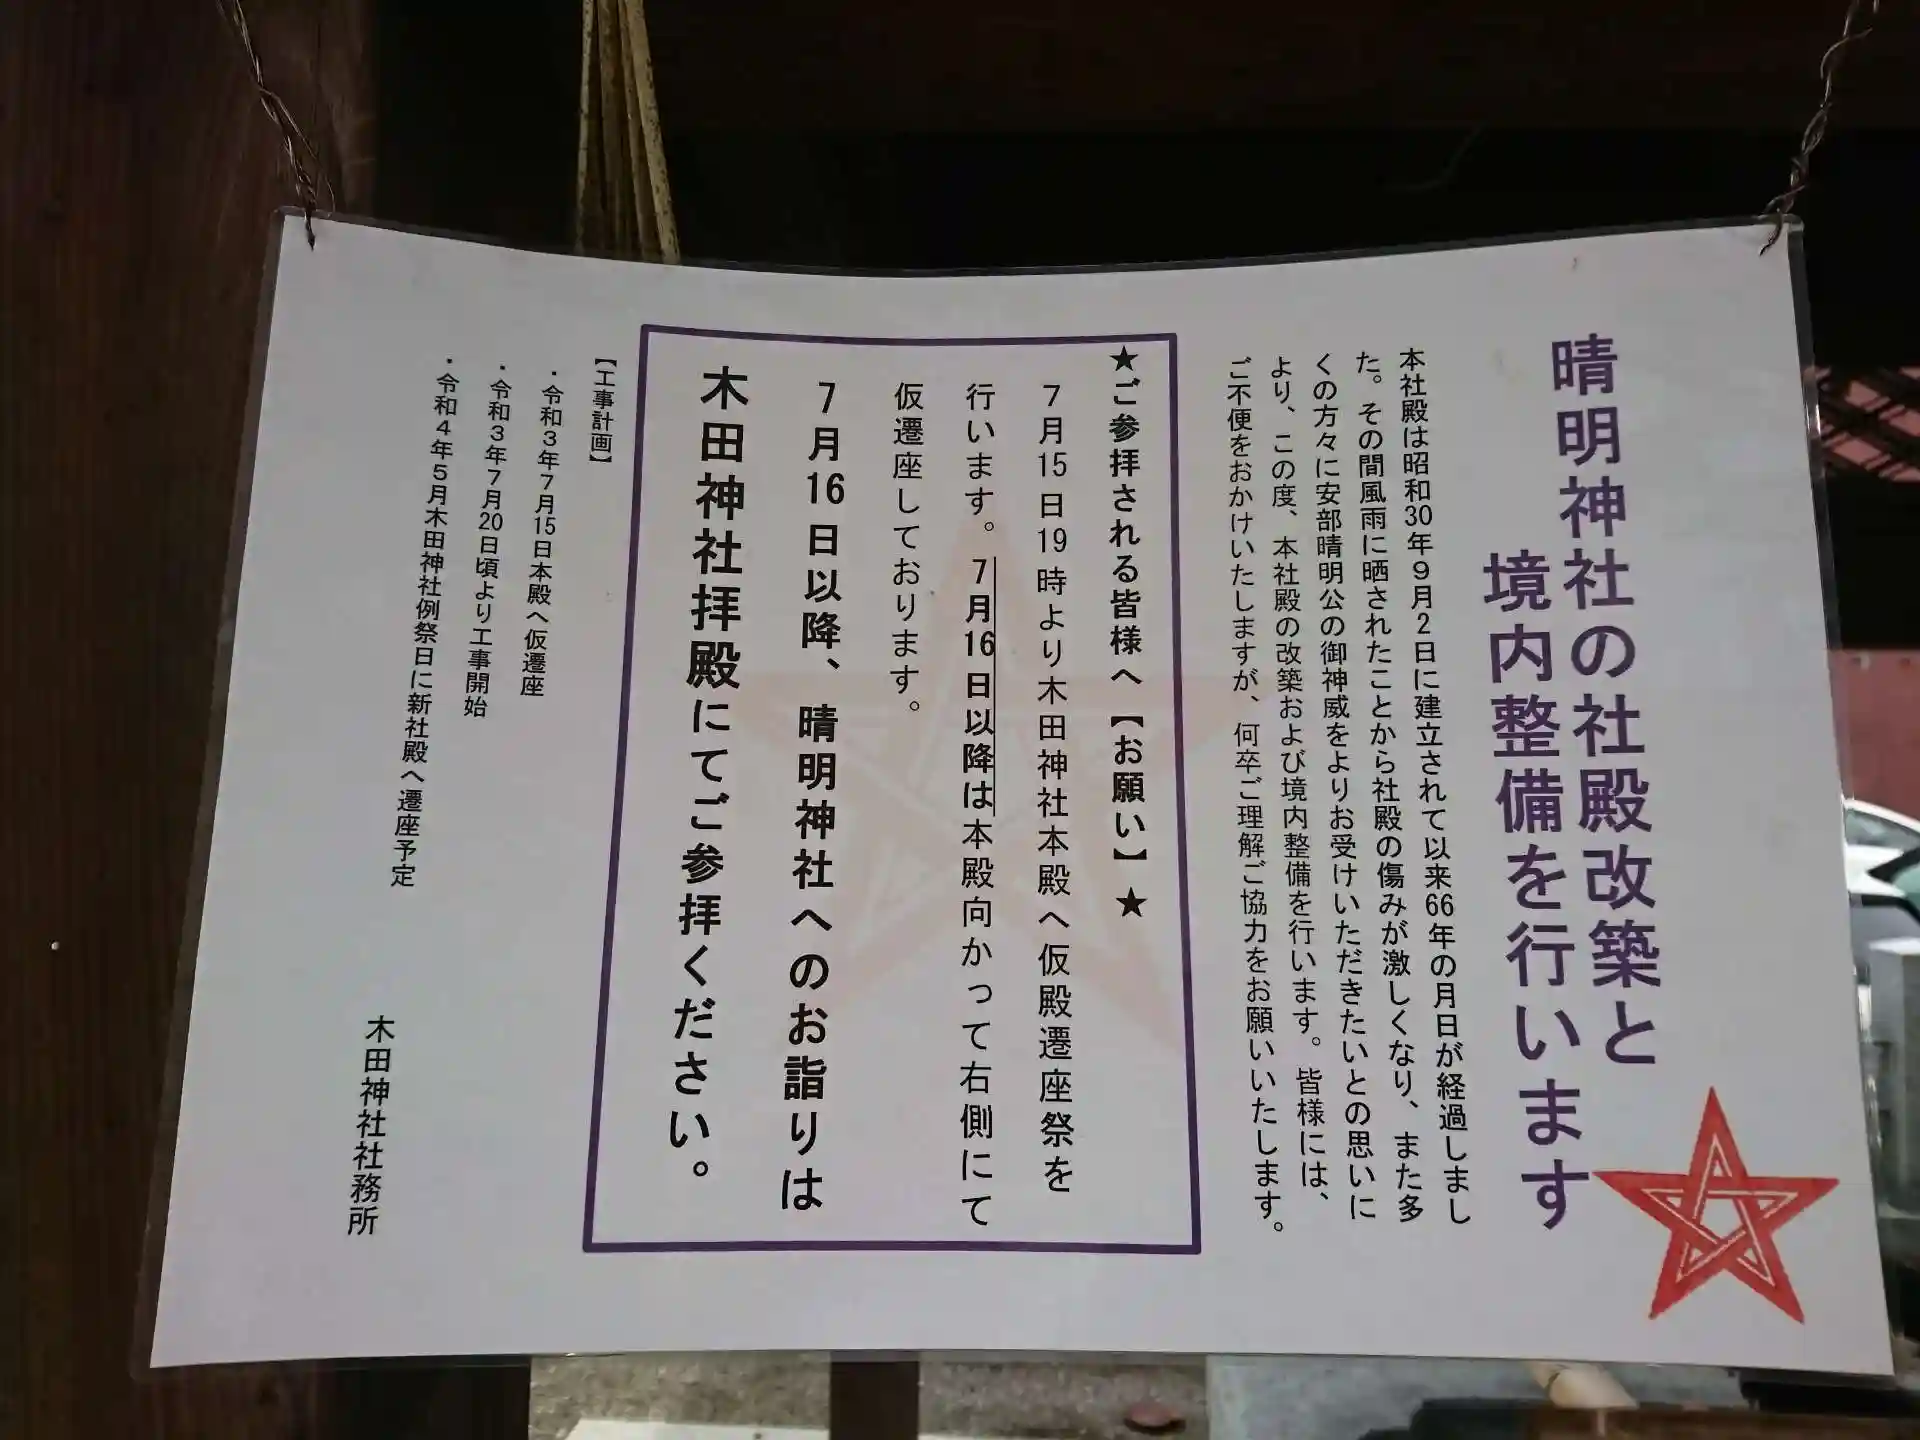 晴明神社の社殿改築と
境内整備を行います
本社殿は昭和30年9月2日に建立されて以来66年の月日が経過しまし
た。その間風雨に晒されたことから社殿の傷みが激しくなり、また多
くの方々に安部晴明公の御神威をよりお受けいただきたいとの思いに
より、この度、本社殿の改築および境内整備を行います。皆様には、
ご不便をおかけいたしますが、何卒ご理解ご協力をお願いいたします。
★ご参拝される皆様へ【お願い】★
7月15日19時より木田神社本殿へ仮殿遷座祭を
行います。7月16日以降は本殿向かって右側にて
仮遷座しております。
7月16日以降、晴明神社へのお詣りは
木田神社拝殿にてご参拝ください。
【工事計画】
・令和3年7月15日本殿へ仮遷座
・令和3年7月20日頃より工事開始
・令和4年5月木田神社例祭日に新社殿へ遷座予定
木田神社社務所